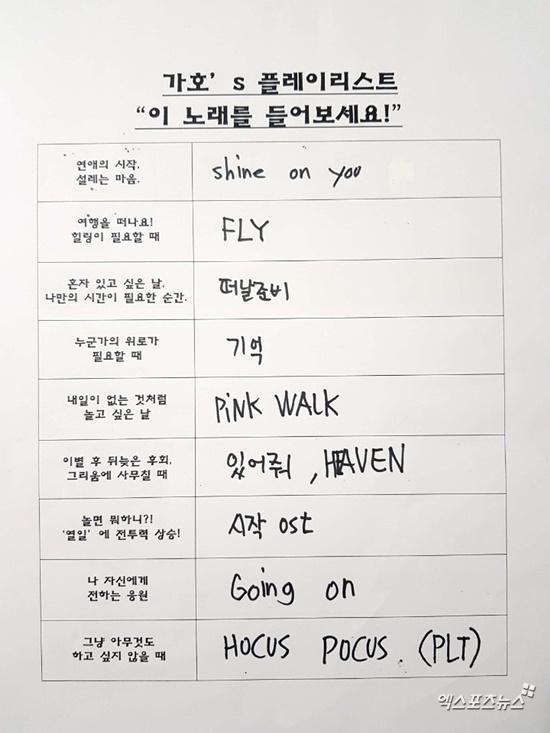 가호’s 플레이리스트
“이 노래를 들어보세요!”
연애의 시작,
설레는 마음.
shine on you
여행을 떠나요!
힐링이 필요할 때
FLY
혼자 있고 싶은 날,
나만의 시간이 필요한 순간.
떠날준비
누군가의 위로가
필요할 때
기억
내일이 없는 것처럼
놀고 싶은 날
PiNK WALK
이별 후 뒤늦은 후회,
그리움에 사무칠 때
있어줘, HEAVEN
놀면 뭐하니?!
‘열일’에 전투력 상승!
시작 ost
나 자신에게
전하는 응원
Going on
그냥 아무것도
하고 싶지 않을 때
HOCUS POCUS (PLT)
엑스포츠뉴스